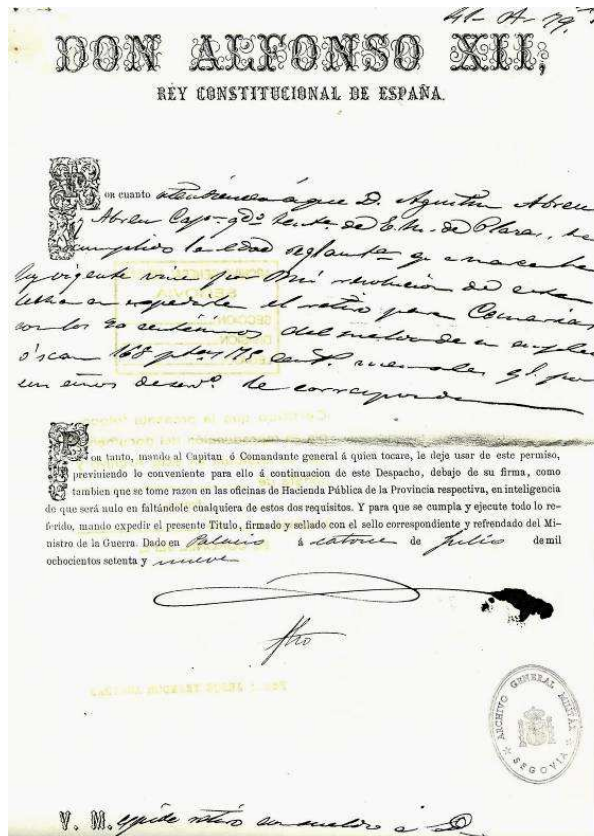 41-A-79.
DON ALFONSO XII,
REY CONSTITUCIONAL DE ESPAÑA.
Por cuanto atendiendo á que D. Agustin Abreu
y Abreu Capn. gdo. Tente. de E. M. de Plaza, ha
cumplido la edad reglamta. que marca la
ley vigente vine por Mi resolucion de esta
fecha en expedirle el retiro para Canarias
con los 90 centimos del sueldo de su empleo
ó sean 168 ptas. 75 cents. mensuales q. por
sus años de servo. le corresponde
Por tanto, mando al Capitan ó Comandante general á quien tocare, le deje usar de este permiso,
previniendo lo conveniente para ello á continuacion de este Despacho, debajo de su firma, como
tambien que se tome razon en las oficinas de Hacienda Pública de la Provincia respectiva, en inteligencia
de que será nulo en faltándole cualquiera de estos dos requisitos. Y para que se cumpla y ejecute todo lo re-
ferido, mando expedir el presente Titulo, firmado y sellado con el sello correspondiente y refrendado del Mi-
nistro de la Guerra. Dado en Palacio á catorce de Julio de mil
ochocientos setenta y nueve
ARCHIVO GENERAL MILITAR
SEGOVIA
V. M. expide retiro con sueldo á D.